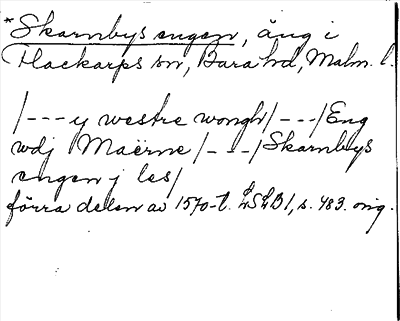 *Skarnbys engen, äng i
Flackarps sn, Bara hd, Malm. l.
/---y westre wongh/---/Eng
wdj Maërne/---/Skarnbys
engen j les/
förra delen av 1570-t. LSLB1, s. 483. orig.